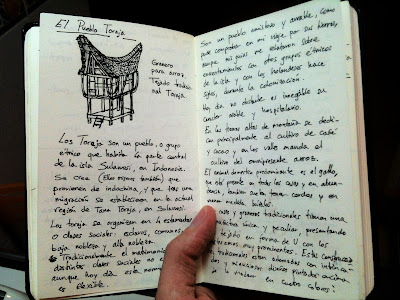 El Pueblo Toraja
Granero
para arroz.
Tejado tradicio
nal Toraja.
Los Toraja son un pueblo, o grupo
étnico que habita la parte central
de la isla Sulawesi, en Indonesia.
Se cree (Ellos mismos también) que
provienen de indochina, y que tras una
migración se establecieron en la actual
región de Tana Toraja, en Sulawesi.
Los toraja se organizan en 4 estamentos
o clases sociales: esclavos, comunes,
baja nobleza y alta nobleza.
Tradicionalmente el matrimonio
distintas clases sociales
aunque hoy día esta norma
es flexible.
Son un pueblo amistoso y amable, como
pude comprobar en mi viaje por sus tierras,
aunque mi guía me relataba sobre
enfrentamientos con otros grupos étnicos
de la isla y con los holandeses hace
siglos, durante la colonización.
Hoy día no obstante es innegable su
carácter noble y hospitalario.
En las tierras altas de montaña se dedi-
can principalmente al cultivo de café
y cacao y en los valles manda el
cultivo del omnipresente arroz.
El animal doméstico predominante es el gallo,
que está presente en todas las casas y en abun-
dancia, también cerdos y en
menor medida búfalos.
casas y graneros tradicionales tienen una
única y peculiar, presentando
tejado en forma de U con los
extremos muy prominentes. Estas construcc
tradicionales están adornadas con intrica-
dos y minuciosos diseños pintados